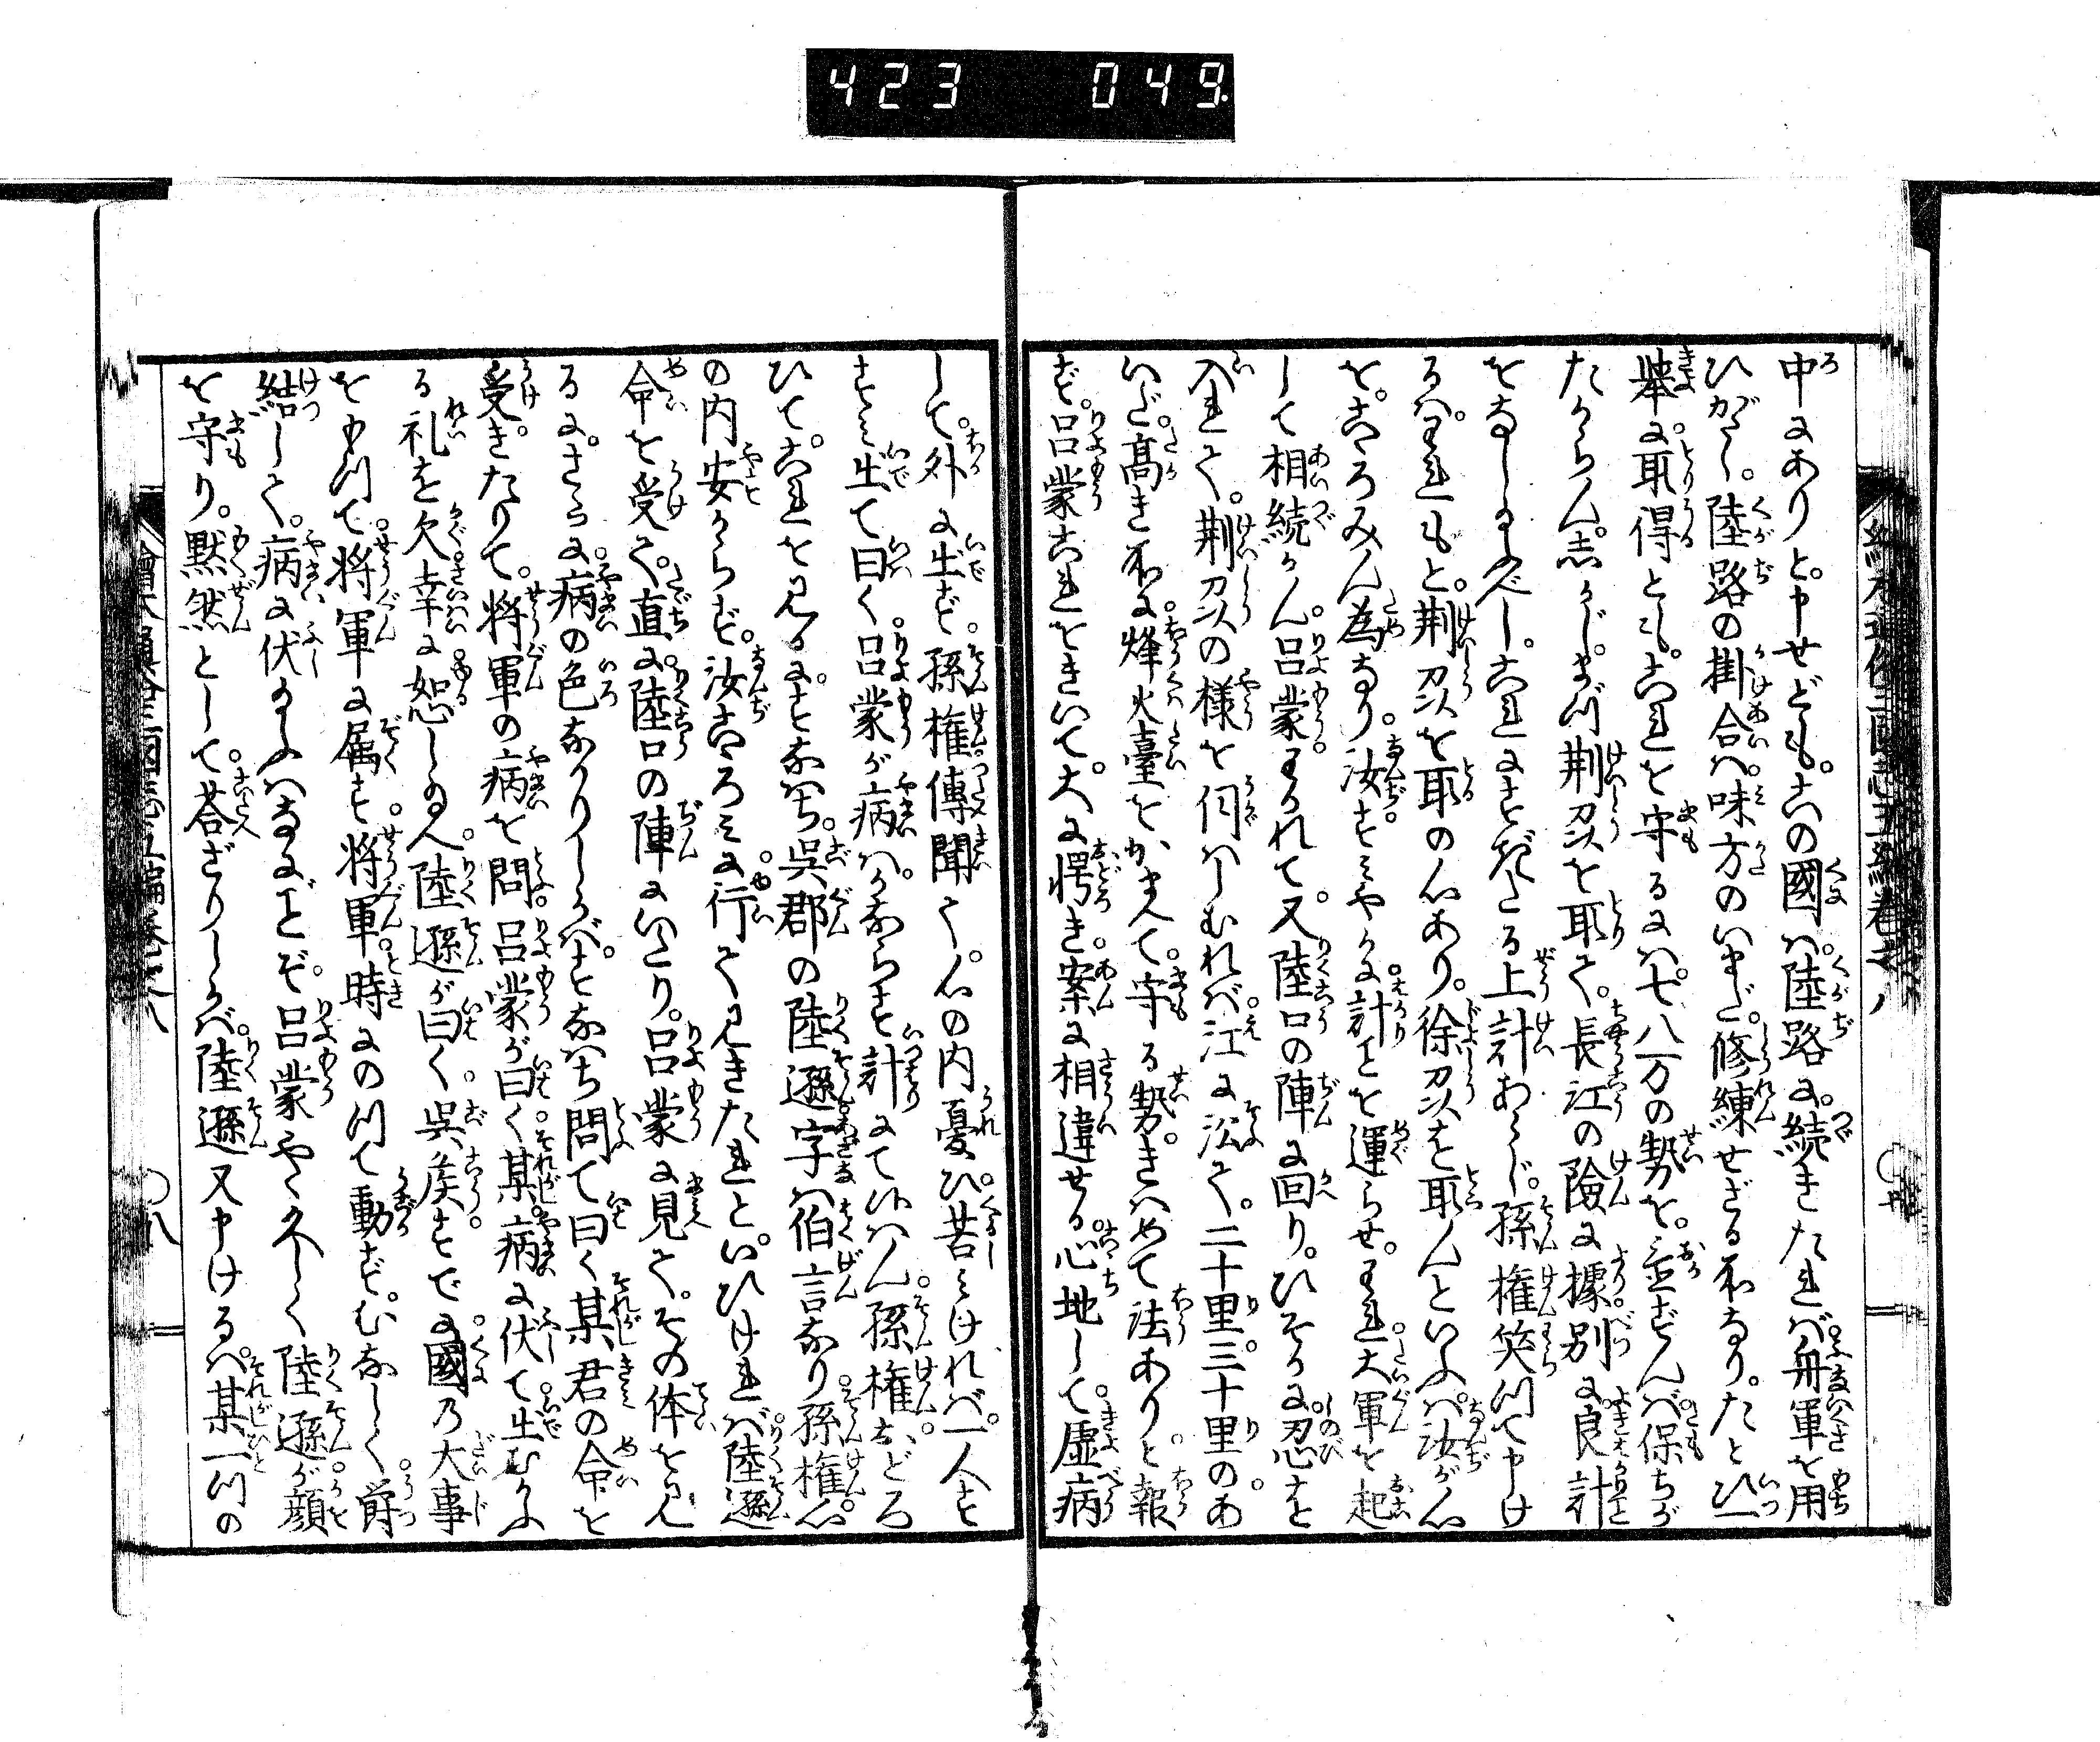 423 049
中にありと申せども。この國は。陸路に。続きたれば。舟軍を用
ひがたし。陸路の掛合は。味方のいまだ。修練せざる所なり。たとひ一
挙に。取得とも。これを守るには。七八万の勢を。置ずんば。保ちが
たからん。志かじ。まづ荊州を取て。長江の險に據。別に。良計
をなし給ふべし。これにすぎたる上計あらじ。孫權笑つて申け
るは。われもと。荊州を取の心あり。徐州を取んといふは。汝が心
を。こゝろみん為なり。汝。すみやかに。計ことを運らせ。われ大軍を起
して相続かん。呂蒙。わかれて。又陸口の陣に回り。ひそかに。忍を
入れて。荊州の様を伺はしむれば。江に沿て。二十里。三十里の。あ
いだ。高き所に。烽火臺を。かまへて。守る勢。きはめて法ありと。報
ず。呂蒙これをきいて。大に愕き。案に相違せる。心地して。虚病
して。外に出ず。孫權傳聞て。心の内憂ひ。苦みければ。一人す
すみ出て曰く。呂蒙が病は。かならず計にて候はん。孫權。おどろ
ひて。これを見るに。すなはち。呉郡の陸遜字は伯言なり。孫權。心
の内安からず。汝こゝろみに。行て見きたれと。いひければ。陸遜
命を受て。直に。陸口の陣にいたり。呂蒙に見て。その体を見
るに。さらに。病の色なかりしかば。すなはち問て曰く。某君の命を
受。きたりて。将軍の病を問。呂蒙が曰く。某。病に伏て。出むかふ
る礼を欠。幸に恕し給へ。陸遜が曰く。呉侯。すでに。國乃大事
を以て。将軍に属す。将軍。時にのつて動ず。むなしく。欝
結して。病に伏給ふはなにごとぞ。呂蒙やゝ久しく陸遜が顔
を守り。黙然として。荅ざりしかば。陸遜又申けるは。某一つの